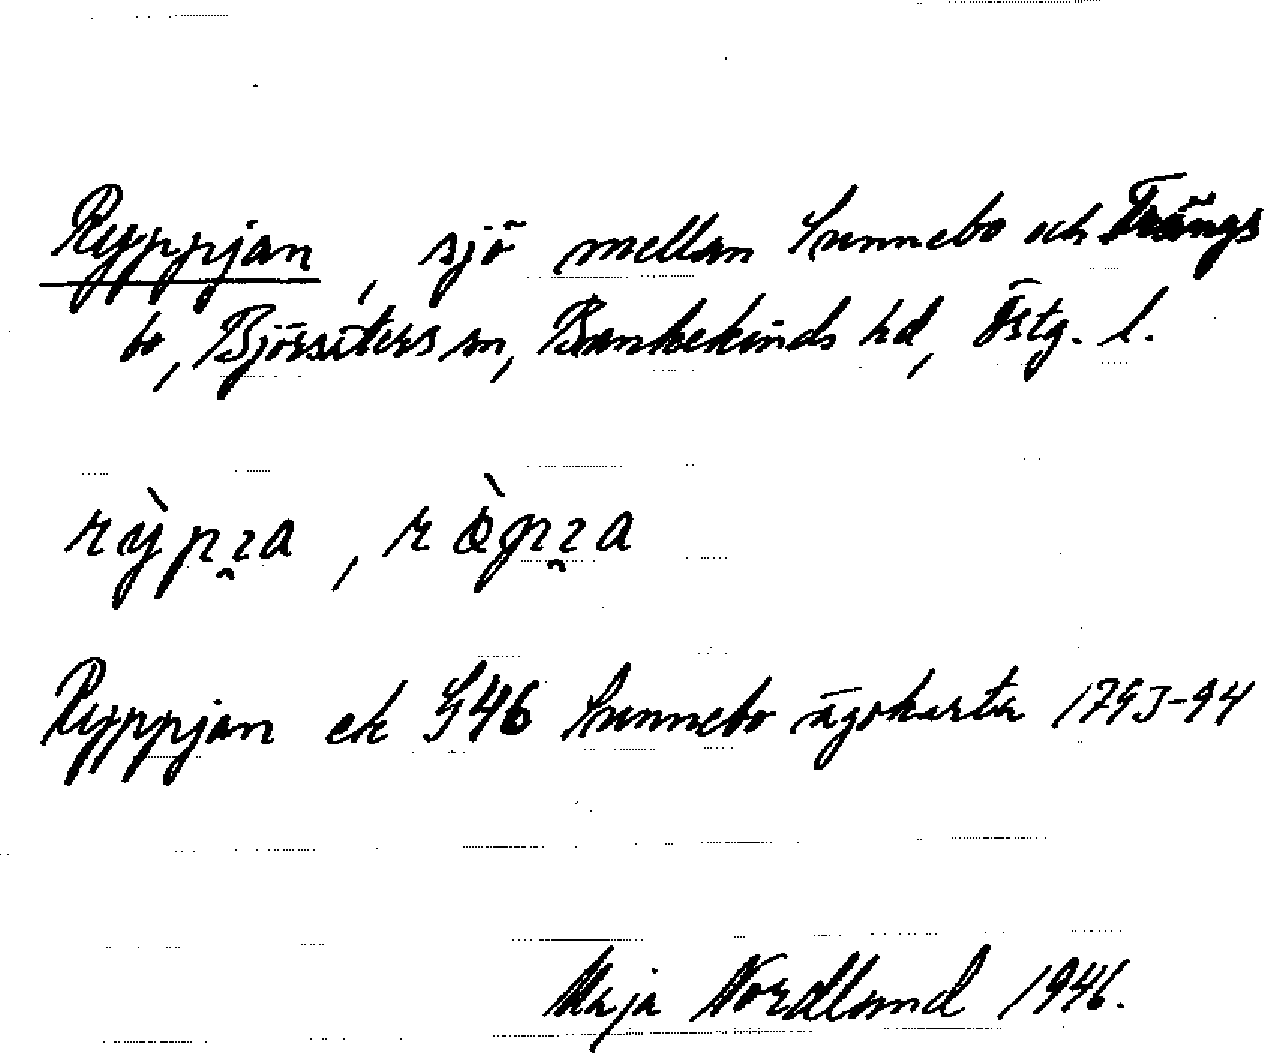 Ryppjan, sjö mellan Sunnebo och Trängs
bo, Björsäters sn, Bankekinds hd, Östg. l.
Ryppjan ek G46 Sunnebo ägokarta 1793-94
Maja Nordlund 1946.